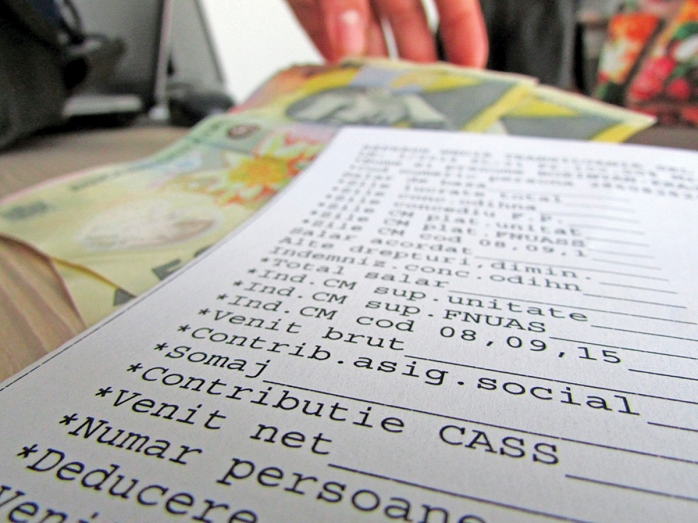 total
*Zile conc.odihna
*Zile concediu F.P.
*Zile CM plat.unitat
*Zile CM plat.FNUASS
*Zile CM cod 08,09,1
Salar acordat
Alte drepturi,dimin.
Indemniz.conc.odihn
*Total salar
*Ind.CM sup.unitate
*Ind.CM sup.FNUAS
*Ind.CM cod 08,09,15
*Venit brut
*Contrib.asig.social
*Somaj
*Contributie CASS
*Venit net
*Numar persoane
*Deducere
Venit